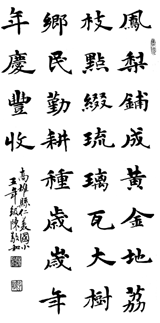 鳳梨鋪成黃金地荔
枝點綴琉璃瓦大樹
鄉民勤耕種歲歲年
年慶豐收
高雄縣仁美國小
五年